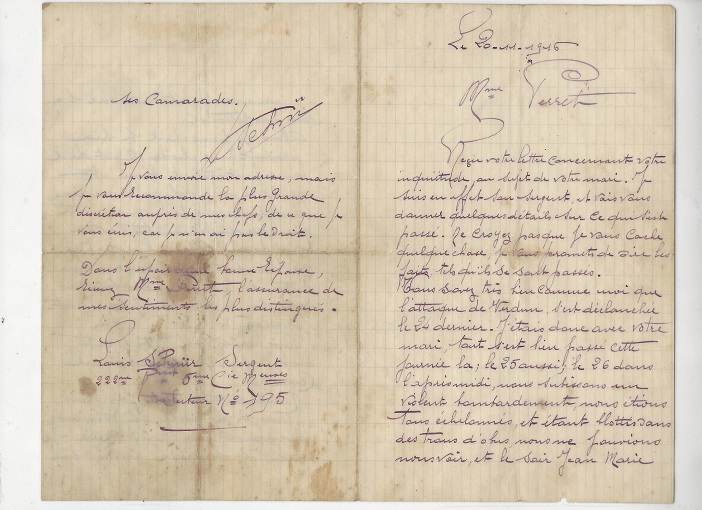 Le 20-11-1916
Mme Perret
Reçu votre lettre concernant votre
inquiétude au sujet de votre mari. Je
suis en effet son sergent, et vais vous
donner quelques détails sur ce qui s'est
passé. Ne croyez pas que je vous cache
quelque chose, je vous promets de dire les
faits tels qu'ils se sont passés.
Vous savez très bien comme moi que
l'attaque de Verdun, s'est déclanchée
le 24 dernier. J'étais donc avec votre
mari, tout s'est bien passé cette
journée là; le 25 aussi; le 26 dans
l'après midi, nous subissons un
violent bombardement nous étions
tous ébètannés, et étant blottis dans
des trous d'obus nous ne pouvions
nous voir, et le soir Jean Marie
ses Camarades.
Je vous envoie mon adresse, mais
je vous recommande la plus grande
discrétion auprès de mes chefs, de ce que je
vous écris, car je n'en ai pas le droit.
Dans l'espoir d'une bonne Réponse,
Recevez Mme Perret l'assurance de
mes sentiments les plus distingués.
Louis Sergent
222me 6me Cie
Secteur No 195